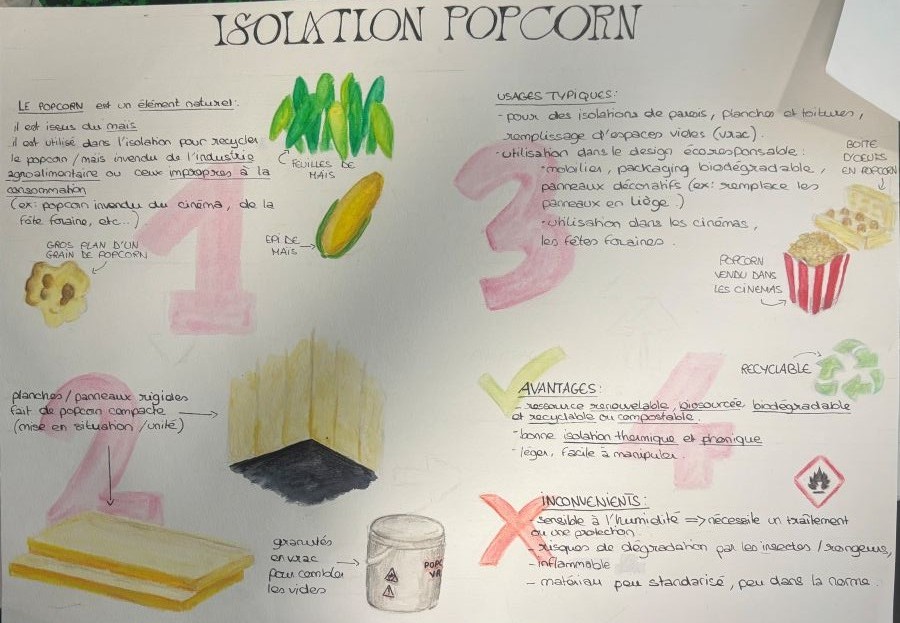 ISOLATION POPCORN
LE POPCORN est un élément naturel:
il est issus du maïs
il est utilisé dans l'isolation pour recycler
le popcorn / maïs invendu de l'industrie
agroalimentaire ou ceux impropres à la
consommation
(ex: popcorn invendu du cinéma, de la
fête foraine, etc...)
FEUILLES DE
MAÏS
EPI DE
MAÏS
GROS PLAN D'UN
GRAIN DE POPCORN
1
2
planches / panneaux rigides
fait de popcorn compacte
(mise en situation / unité)
granulés
en vrac
pour combler
les vides
POPC
VR
3
USAGES TYPIQUES:
- pour des isolations de parois, planches et toitures,
remplissage d'espaces vides (vrac).
- utilisation dans le design écoresponsable:
• mobilier, packaging biodégradable,
panneaux décoratifs (ex: remplace les
panneaux en liège.)
• utilisation dans les cinémas,
les fêtes foraines.
BOITE
D'OEUFS
EN POPCORN
POPCORN
VENDU DANS
LES CINEMAS
4
RECYCLABLE
AVANTAGES:
- ressource renouvelable, biosourcée biodégradable
et recyclable ou compostable.
- bonne isolation thermique et phonique
- léger, facile à manipuler.
INCONVENIENTS:
- sensible à l'humidité => nécessite un traîtement
ou une protection.
- risques de dégradation par les insectes / rongeurs,
- inflammable
- matériau peu standarisé, peu dans la norme.